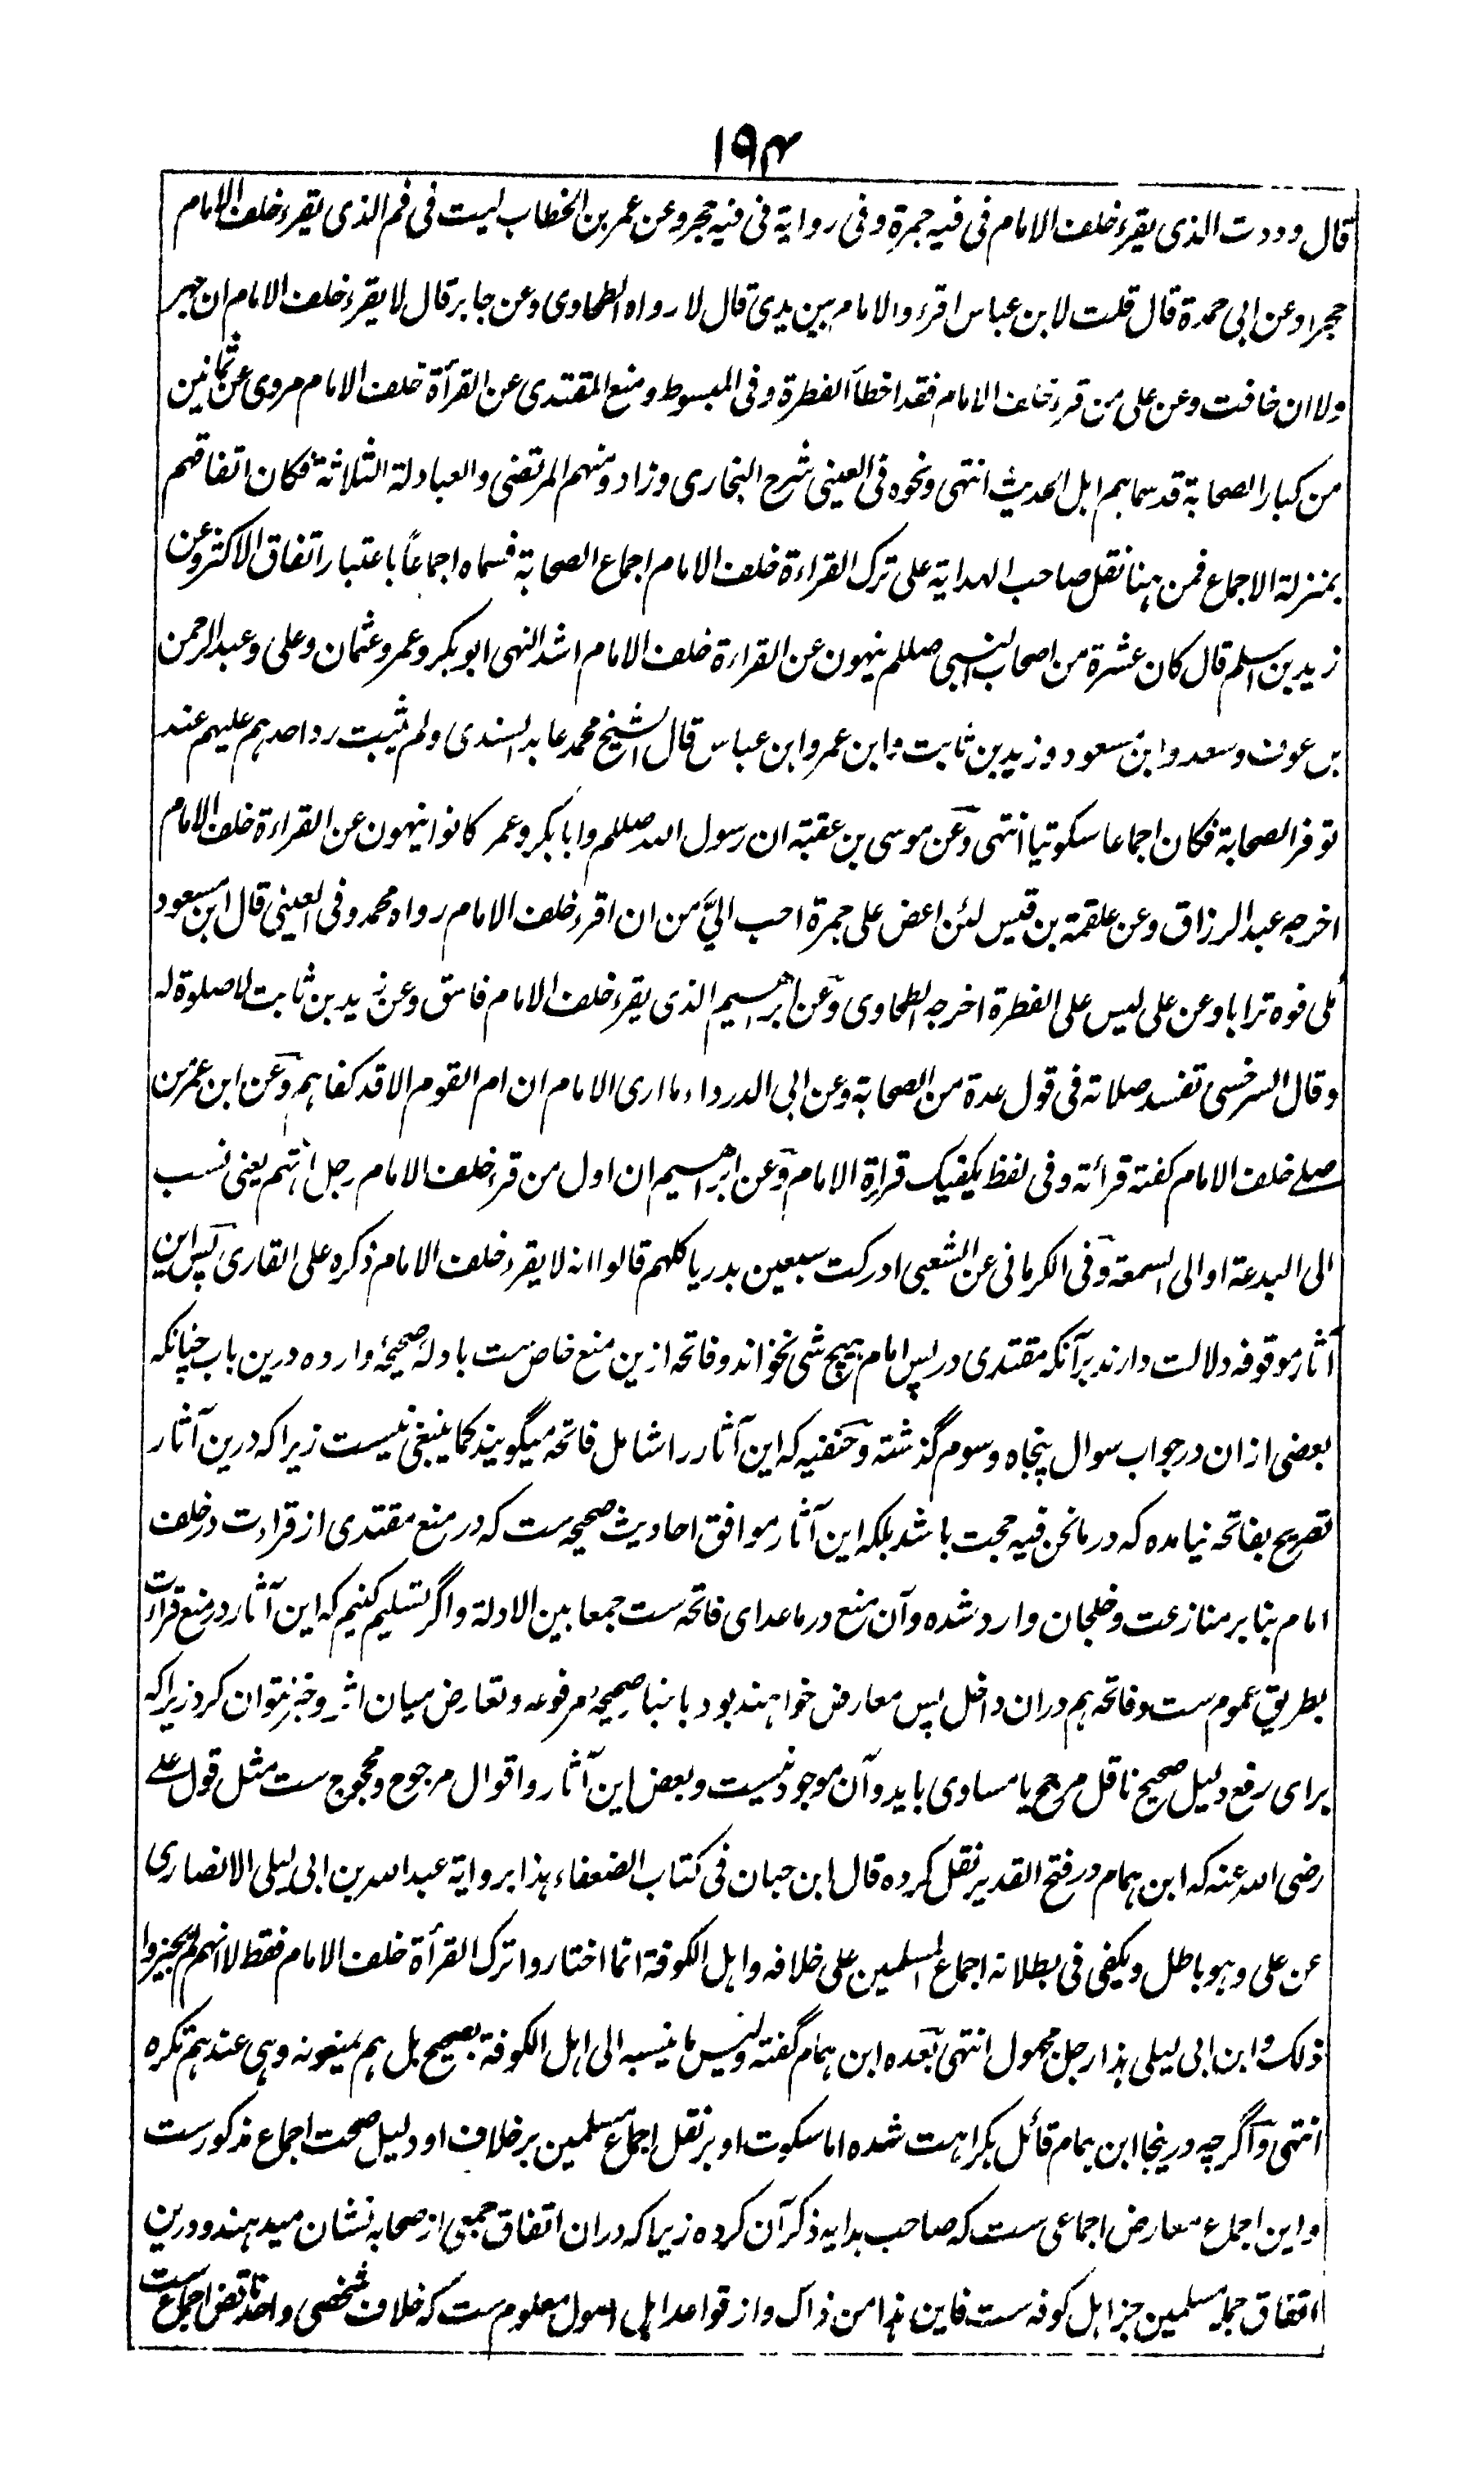 ۱۹۴
قال وددت الذی یقرء خلف الامام فی فیه جمرة وفی روایة فی فیه حجر وعن عمر بن الخطاب لیت فی فم الذی یقرء خلف الامام
حجرا وعن ابی حمرة قال قلت لابن عباس اقرء والامام بین یدی قال لا رواه الطحاوی وعن جابر قال لا یقرء خلف الامام ان جهر
ولا ان خافت وعن علی من قرء خلف الامام فقد اخطأ الفطرة وفی المبسوط ومنع المقتدی عن القرأة خلف الامام مروی عن ثمانین
من کبار الصحابة قد سماهم اهل الحدیث انتهی ونحوه فی العینی شرح البخاری وزاد ومنهم المرتضی والعبادلة الثلاثة فکان اتفاقهم
بمنزلة الاجماع فمن هنا نقل صاحب الهدایة علی ترک القراءة خلف الامام اجماع الصحابة فسماه اجماعاً باعتبار اتفاق الاکثر وعن
زید بن اسلم قال کان عشرة من اصحاب النبی صللم ینهون عن القراءة خلف الامام اشد النهی ابوبکر وعمر وعثمان وعلی وعبدالرحمن
بن عوف وسعد وابن مسعود وزید بن ثابت وابن عمر وابن عباس قال الشیخ محمد عابد السندی ولم یثبت رد احدهم علیهم عند
توفر الصحابة فکان اجماعا سکوتیا انتهی وعن موسی بن عقبة ان رسول الله صللم وابابکر وعمر کانوا ینهون عن القراءة خلف الامام
اخرجه عبدالرزاق وعن علقمة بن قیس لئن اعض علی جمرة احب الیَّ من ان اقرء خلف الامام رواه محمد وفی العینی قال ابن مسعود
ملی فوه ترابا وعن علی لیس علی الفطرة اخرجه الطحاوی وعن ابراهیم الذی یقرء خلف الامام فاسق وعن زید بن ثابت لا صلوة له
وقال السرخسی تفسد صلاته فی قول عدة من الصحابة وعن ابی الدرداء ما اری الامام ان ام القوم الا قد کفاهم وعن ابن عمر من
صلے خلف الامام کفته قرائة وفی لفظ یکفیک قراءة الامام وعن ابراهیم ان اول من قرء خلف الامام رجل اتهم یعنی نسب
الی البدعة او الی السمعة وفی الکرمانی عن الشعبی ادرکت سبعین بدریا کلهم قالوا انه لا یقرء خلف الامام ذکره علی القاری پس این
آثار موقوفه دلالت دارند برآنکه مقتدی در پس امام هیچ شی نخواند و فاتحه ازین منع خاص ست بادلهٔ صحیحهٔ وارده درین باب چنانکه
بعضی ازان در جواب سوال پنجاه وسوم گذشته وحنفیه که این آثار را شامل فاتحه میگویند کما ینبغی نیست زیراکه درین آثار
تصریح بفاتحه نیامده که در ما نحن فیه حجت باشد بلکه این آثار موافق احادیث صحیحه ست که در منع مقتدی از قراءت در خلف
امام بنا بر منازعت وخلجان وارد شده وآن منع در ماعدای فاتحه ست جمعا بین الادلة واگر تسلیم کنیم که این آثار در منع قراءت
بطریق عموم ست وفاتحه هم دران داخل پس معارض خواهند بود با بناء صحیحهٔ مرفوعه وتعارض میان اثر وخبر نتوان کرد زیراکه
برای رفع دلیل صحیح ناقل مرجح یا مساوی باید وآن موجود نیست وبعض این آثار واقوال مرجوح ومحجوج ست مثل قول علے
رضی الله عنه که ابن همام در فتح القدیر نقل کرده قال ابن حبان فی کتاب الضعفاء هذا بروایة عبدالله بن ابی لیلی الانصاری
عن علی وهو باطل ویکفی فی بطلانه اجماع المسلمین علی خلافه واهل الکوفة انما اختاروا ترک القرأة خلف الامام فقط لا انهم لم یجیزوا
ذلک وابن ابی لیلی هذا رجل مجهول انتهی بعده ابن همام گفته ولیس ما نیسبه الی اهل الکوفة بصحیح بل هم یمنعونه وهی عندهم تکره
انتهی واگرچه درینجا ابن همام قائل بکراهت شده اما سکوت او بر نقل اجماع مسلمین برخلاف او دلیل صحت اجماع مذکورست
واین اجماع معارض اجماعی ست که صاحب هدایه ذکر آن کرده زیراکه دران اتفاق جمعی از صحابه نشان میدهند ودرین
اتفاق جمله مسلمین جز اهل کوفه ست فاین هذا من ذاک واز قواعد اهل اصول معلوم ست که خلاف شخصی واحد ناقض اجماع ست